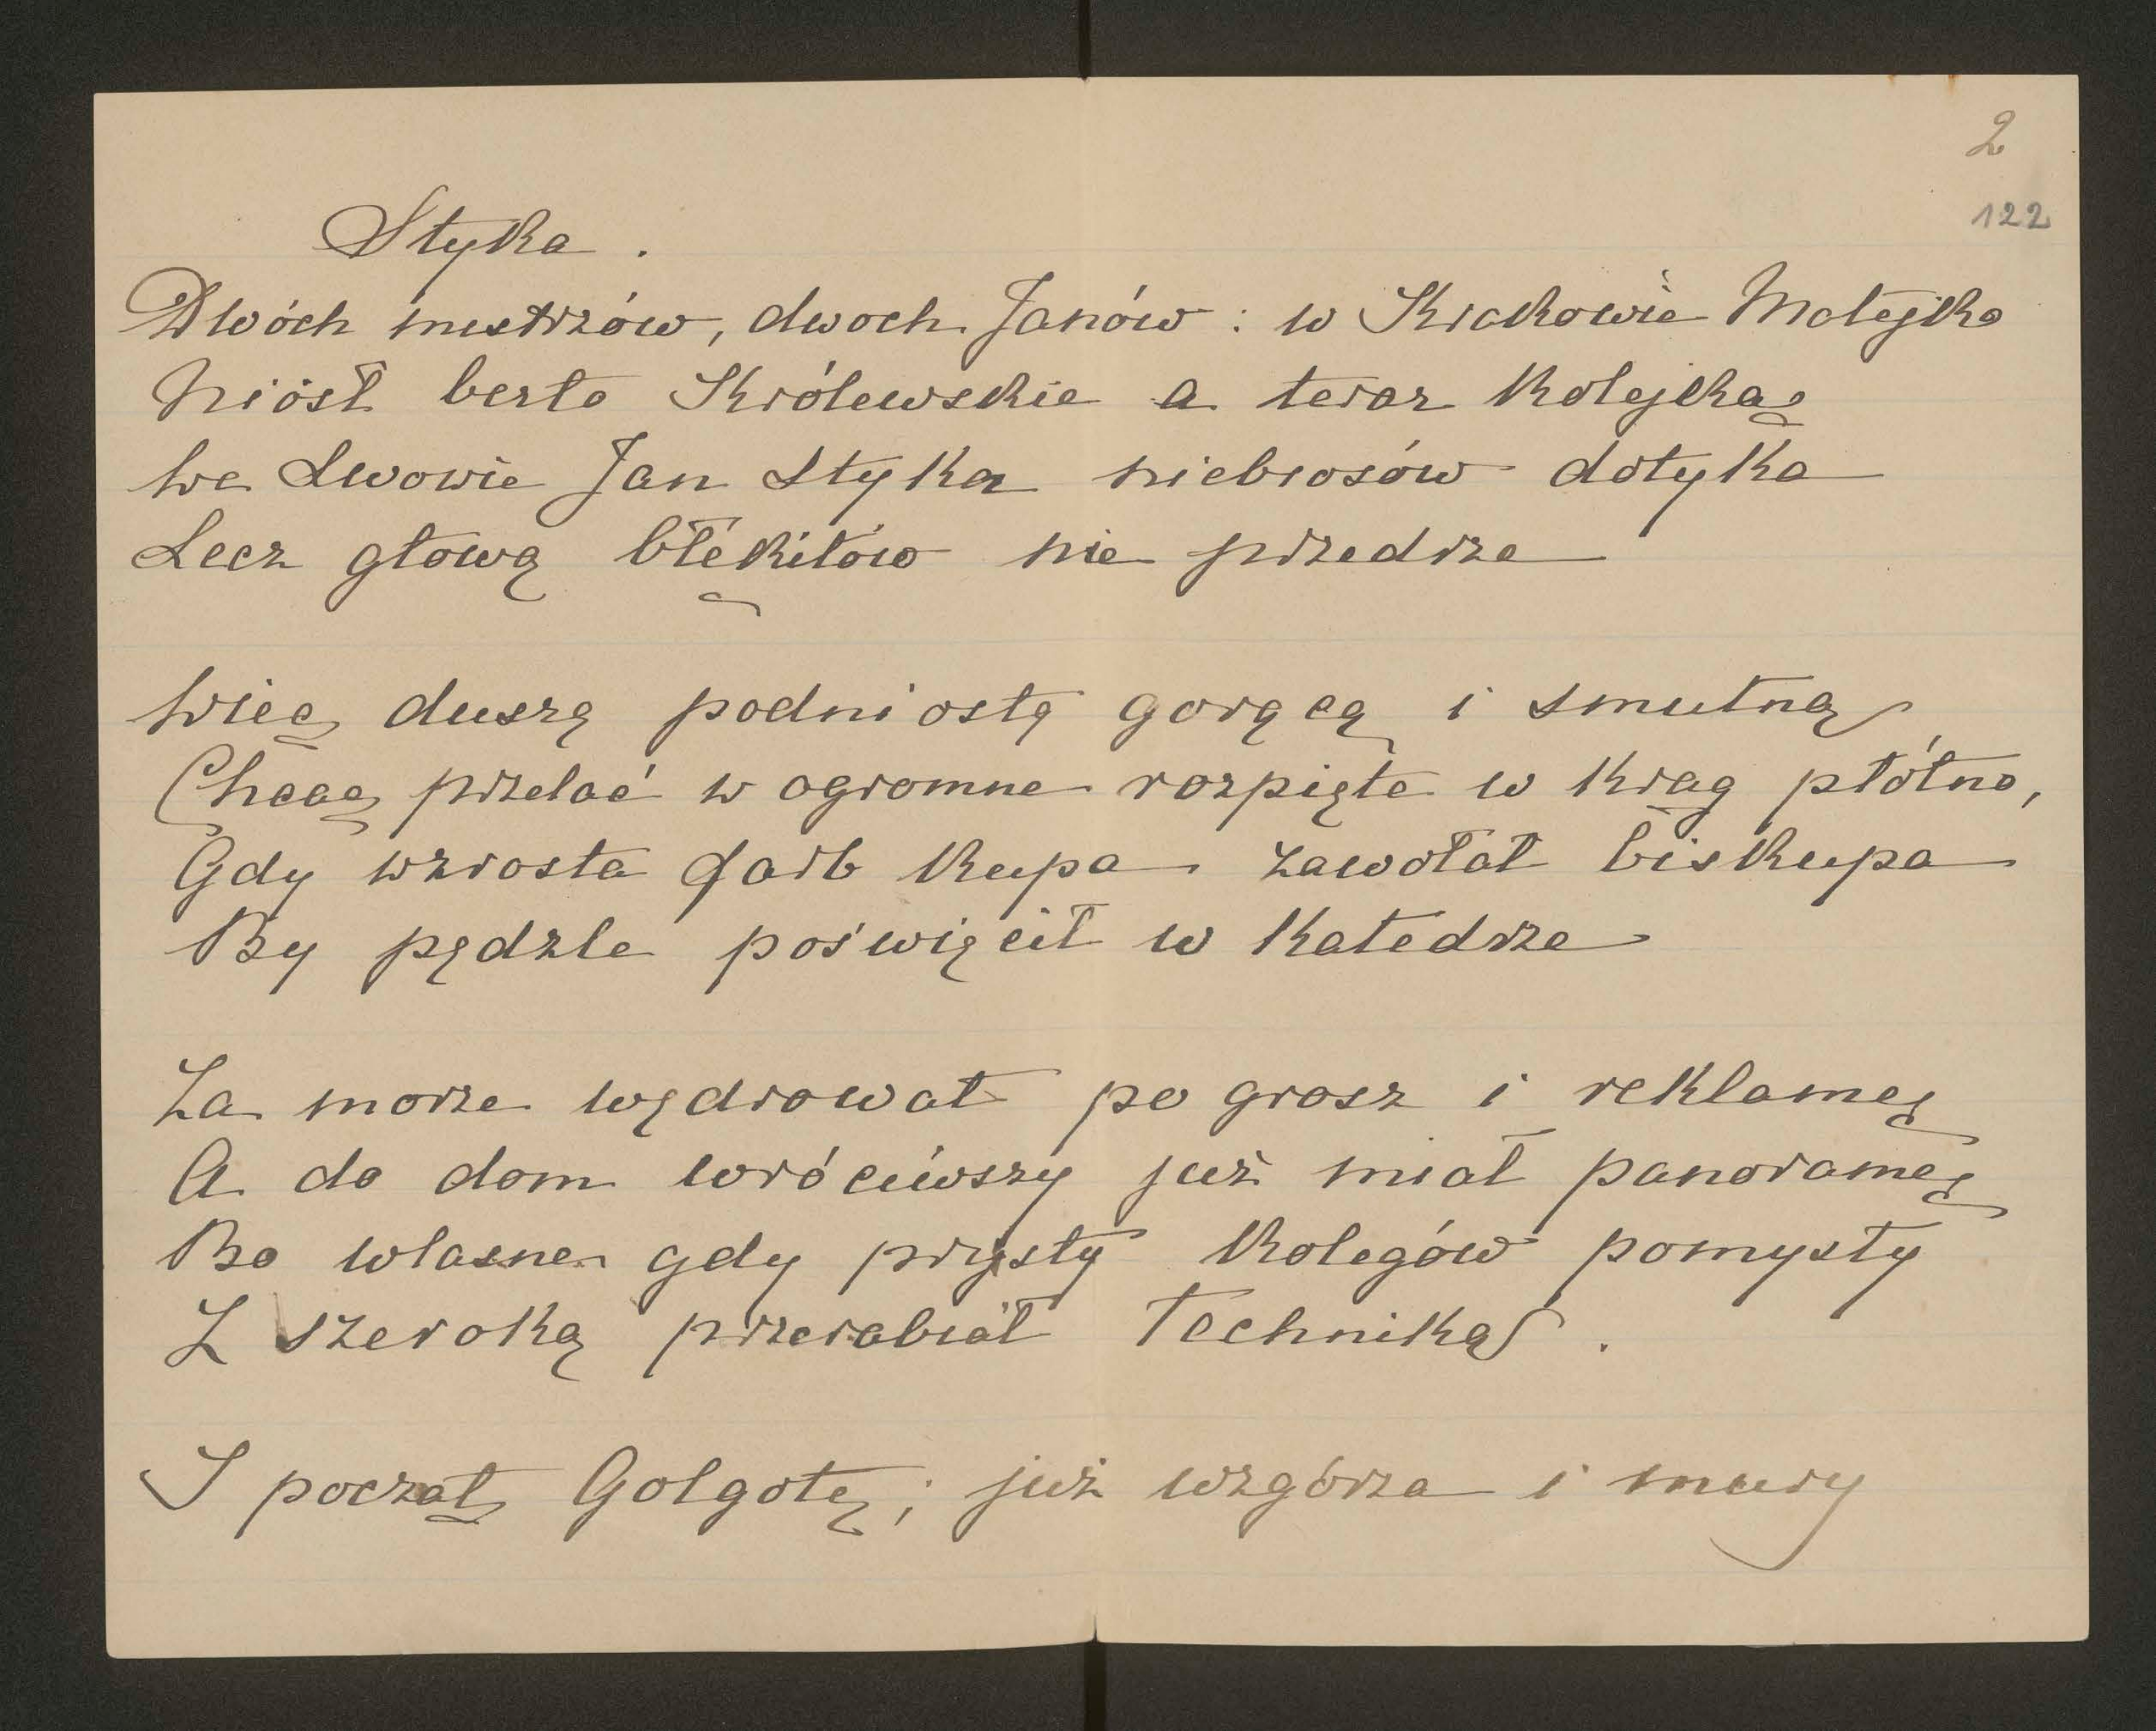 2
122
Styka.
Dwóch mistrzów, dwoch Janów: w Krakowie Matejko
Niósł berło Królewskie a teraz Kolejką
we Lwowie Jan Styka niebiosów dotyka
Lecz głową błękitów nie przedrze
więc duszę podniosłą gorącą i smutną
Chcąc przelać w ogromne rozpięte w krąg płótno,
Gdy wzrosła farb kupa zawołał biskupa
By pędzle poświęcił w Katedrze
Za morze wędrował po grosz i reklamę
A do dom wróciwszy już miał panoramę
Bo własne gdy prysły Kolegów pomysły
Z szeroką przerabiał Techniką.
I począł Golgotę; już wzgórza i mury